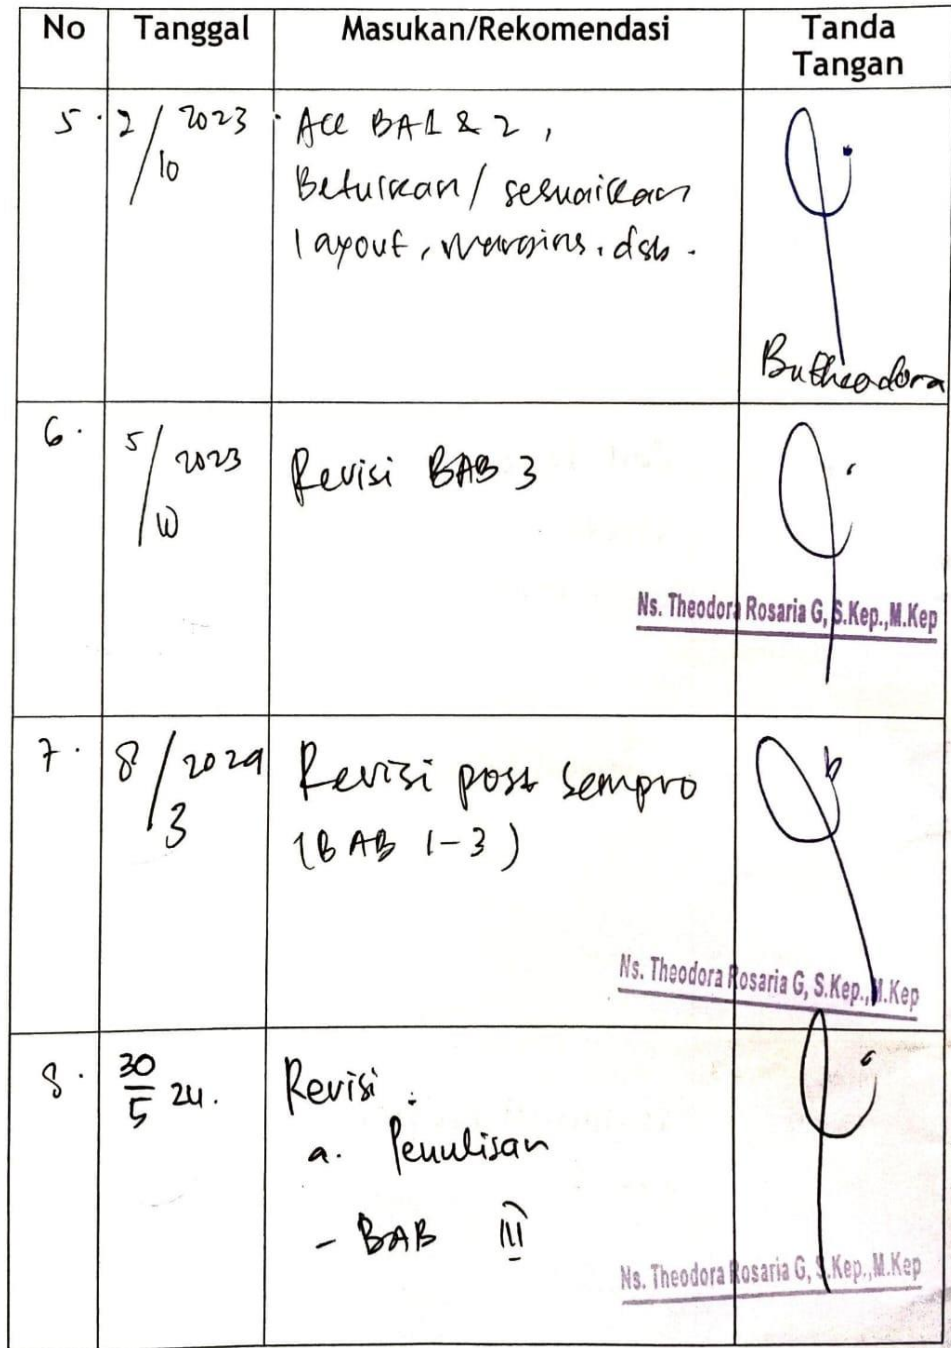 No Tanggal Masukan/Rekomendasi Tanda Tangan
5. 2/10 2023 Acc BAB 1 & 2,
Betulkan/sesuaikan
layout, margins, dsb.
Bu Theodora
6. 5/10 2023 Revisi BAB 3
Ns. Theodora Rosaria G, S.Kep.,M.Kep
7. 8/3 2024 Revisi post sempro
(BAB 1-3)
Ns. Theodora Rosaria G, S.Kep.,M.Kep
8. 30/5 24. Revisi :
a. Penulisan
- BAB III
Ns. Theodora Rosaria G, S.Kep.,M.Kep